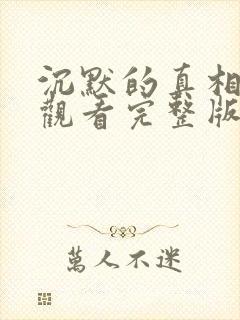 沉默的真相
觀看完整版
萬人不迷